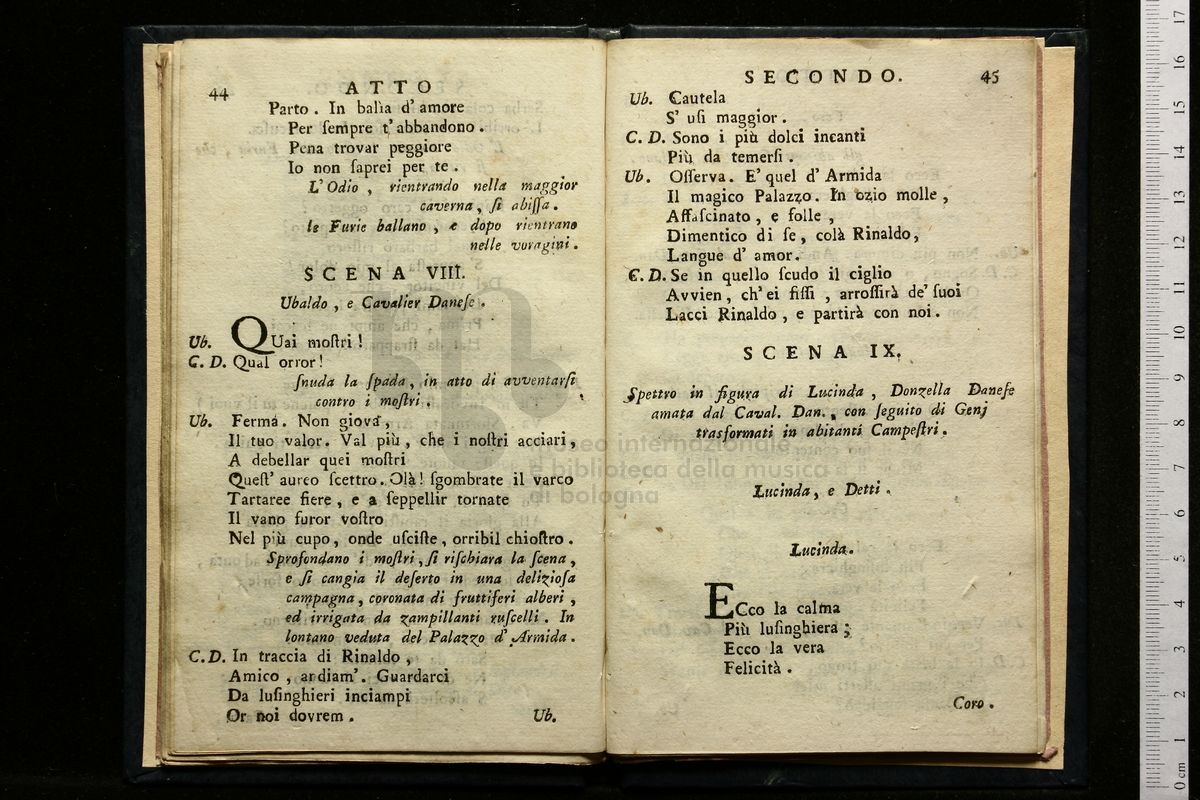 44
ATTO
Parto. In balìa d' amore
Per ſempre t' abbandono.
Pena trovar peggiore
Io non ſaprei per te.
L' Odio, rientrando nella maggior
caverna, ſi abiſſa.
le Furie ballano, e dopo rientrano
nelle voragini.
SCENA VIII.
Ubaldo, e Cavalier Daneſe.
Ub. QUai moſtri!
C. D. Qual orror!
ſnuda la ſpada, in atto di avventarſi
contro i moſtri.
Ub. Ferma. Non giova,
Il tuo valor. Val più, che i noſtri acciari,
A debellar quei moſtri
Queſt' aureo ſcettro. Olà! ſgombrate il varco
Tartaree fiere, e a ſeppellir tornate
Il vano furor voſtro
Nel più cupo, onde uſciſte, orribil chioſtro.
Sprofondano i moſtri, ſi riſchiara la ſcena,
e ſi cangia il deſerto in una delizioſa
campagna, coronata di fruttiferi alberi,
ed irrigata da zampillanti ruſcelli. In
lontano veduta del Palazzo d' Armida.
C. D. In traccia di Rinaldo,
Amico, andiam'. Guardarci
Da luſinghieri inciampi
Or noi dovrem.
Ub.
SECONDO.
45
Ub. Cautela
S' uſi maggior.
C. D. Sono i più dolci incanti
Più da temerſi.
Ub. Oſſerva. E' quel d' Armida
Il magico Palazzo. In ozio molle,
Affaſcinato, e folle,
Dimentico di ſe, colà Rinaldo,
Langue d' amor.
C. D. Se in quello ſcudo il ciglio
Avvien, ch' ei fiſſi, arroſſirà de' ſuoi
Lacci Rinaldo, e partirà con noi.
SCENA IX.
Spettro in figura di Lucinda, Donzella Daneſe
amata dal Caval. Dan., con ſeguito di Genj
trasformati in abitanti Campeſtri.
Lucinda, e Detti.
Lucinda.
ECco la calma
Più luſinghiera;
Ecco la vera
Felicità.
Coro.
museo internazionale
e biblioteca della musica
di bologna
0 cm 1 2 3 4 5 6 7 8 9 10 11 12 13 14 15 16 17